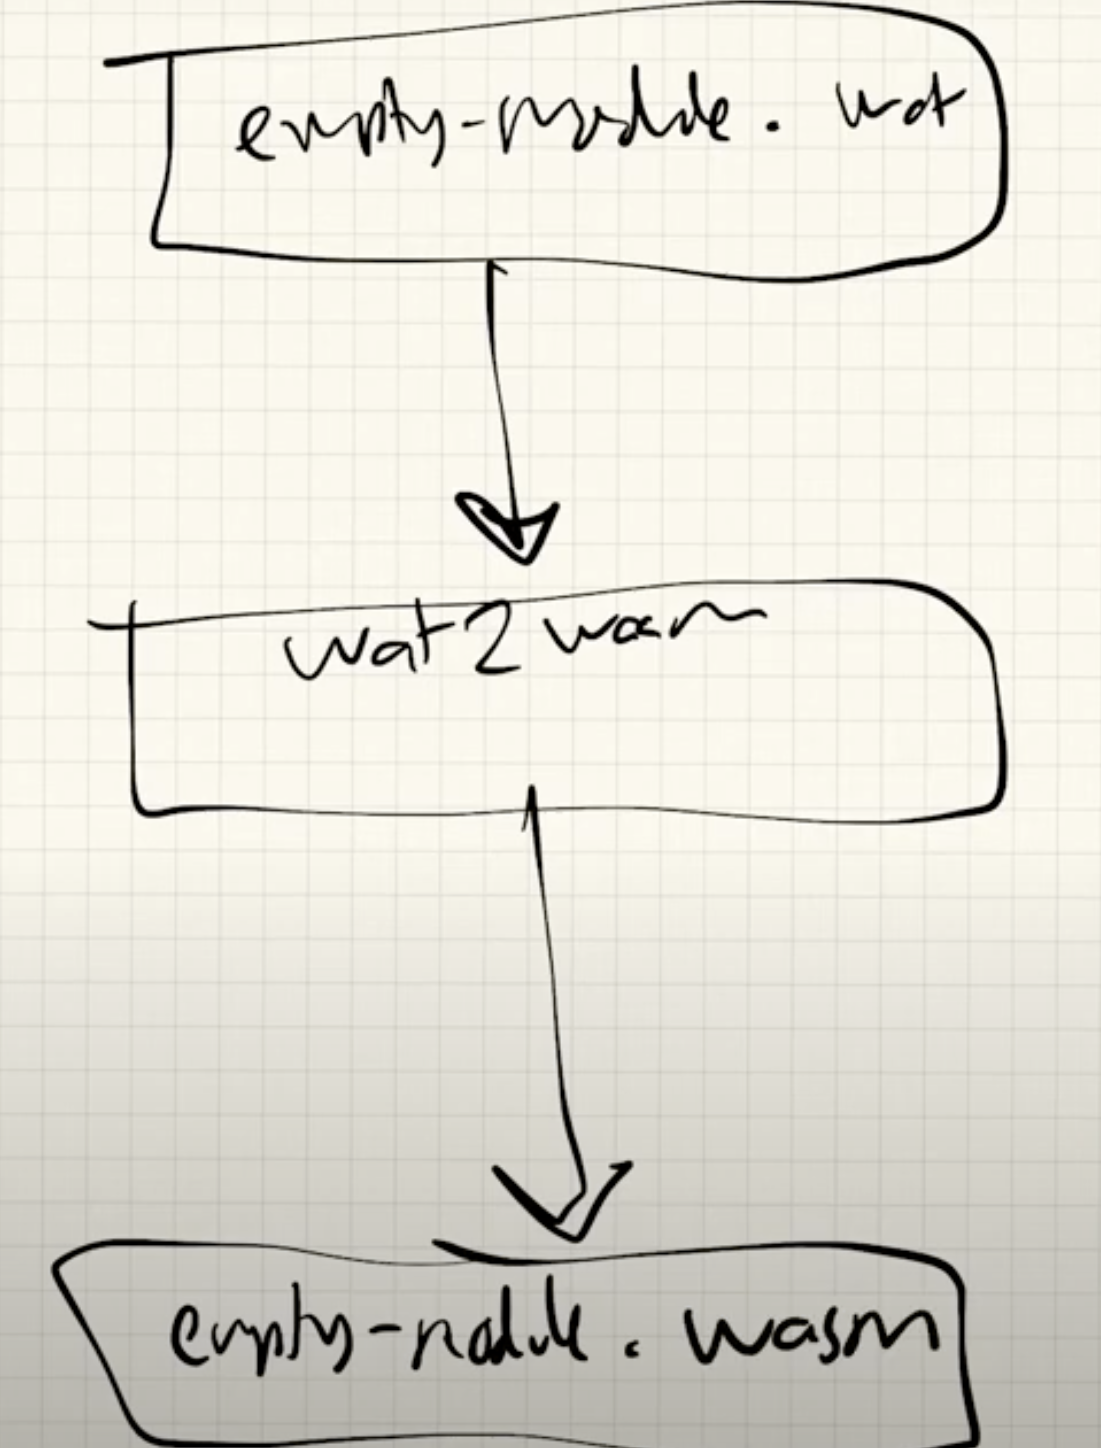 empty-module. wat
wat2wasm
empty-module. wasm